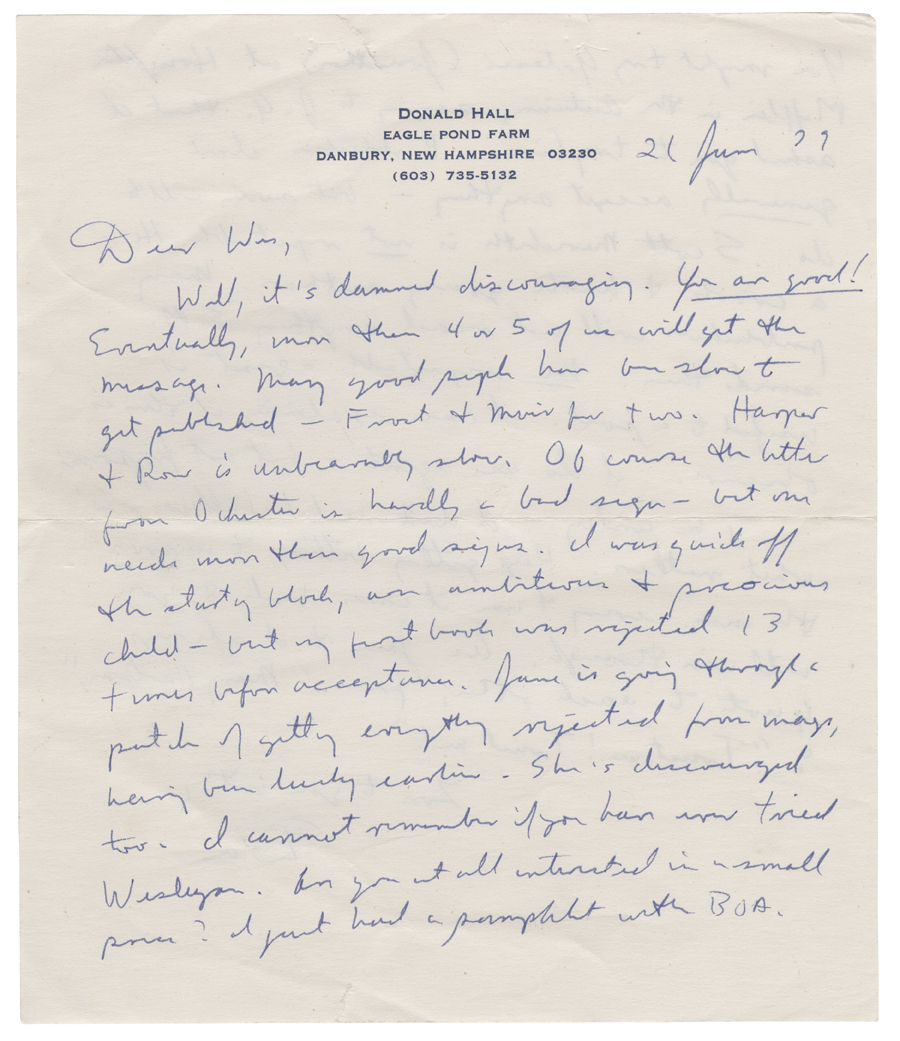 DONALD HALL
EAGLE POND FARM
DANBURY, NEW HAMPSHIRE 03230
(603) 735-5132
June 77
Dear Wes,
Well, it's damned discouraging. You are good!
Eventually, more than 4 or 5 of us will get the
message. Many good people have been slow to
get published – Frost & Muir for two. Harper
& Row is unbearably slow. Of course the letter
from Ochester is hardly a bad sign – but one
needs more than good signs. I was quick off
the starting block, an ambitious & precocious
child – but my first book was rejected 13
times before acceptance. Jane is going through a
patch of getting everything rejected from mags,
having been lucky earlier. She is discouraged
too. I cannot remember if you have ever tried
Wesleyan. Are you at all interested in a small
press? I just had a pamphlet with BOA.